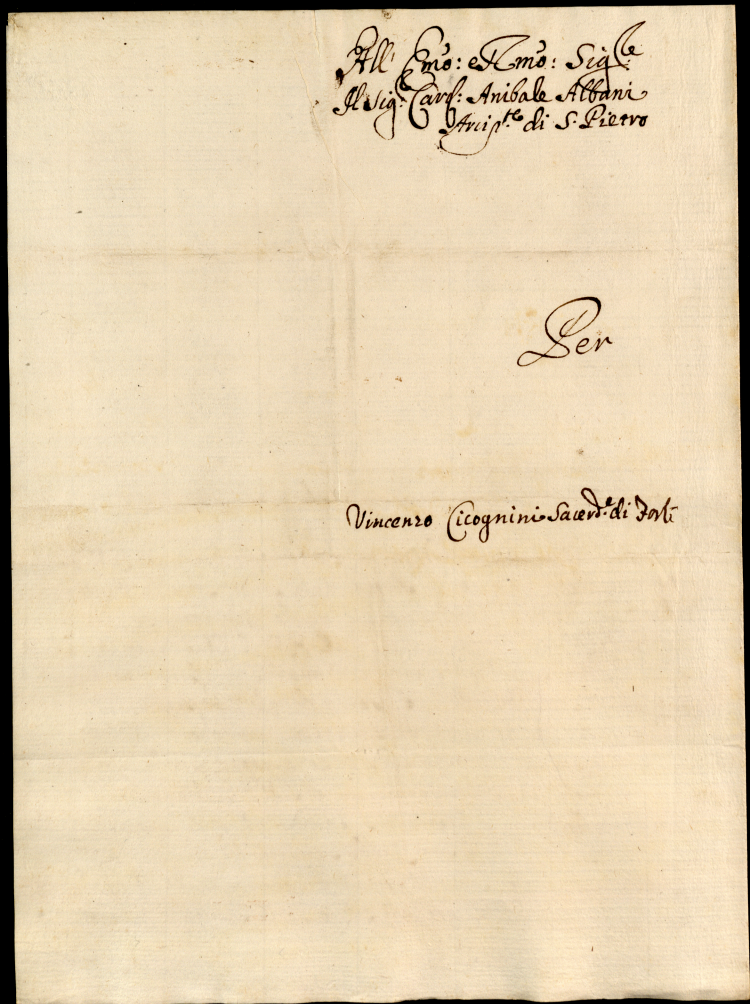 All' Emo: e Rmo: Sig:re
Il Sig:e Card: Anibale Albani
Arcip.te di S. Pietro
Per
Vincenzo Cicognini Sacerd.e di Forlì